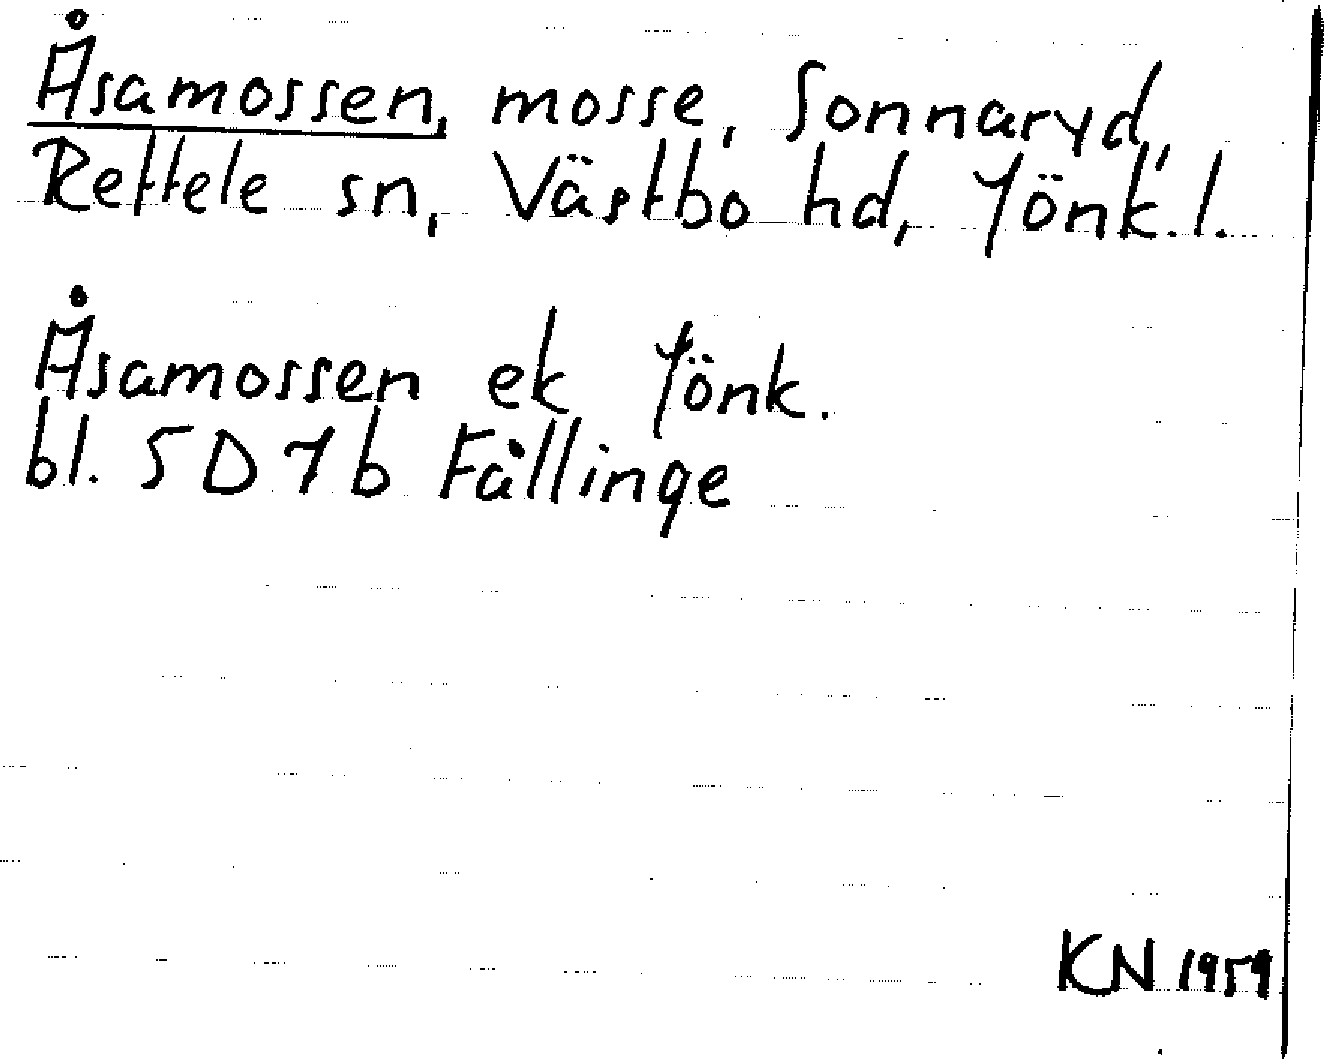 Åsamossen, mosse, Sonnaryd,
Reftele sn, Västbo hd, Jönk. l.
Åsamossen ek Jönk.
bl. 5D7b Fållinge
KN 1959